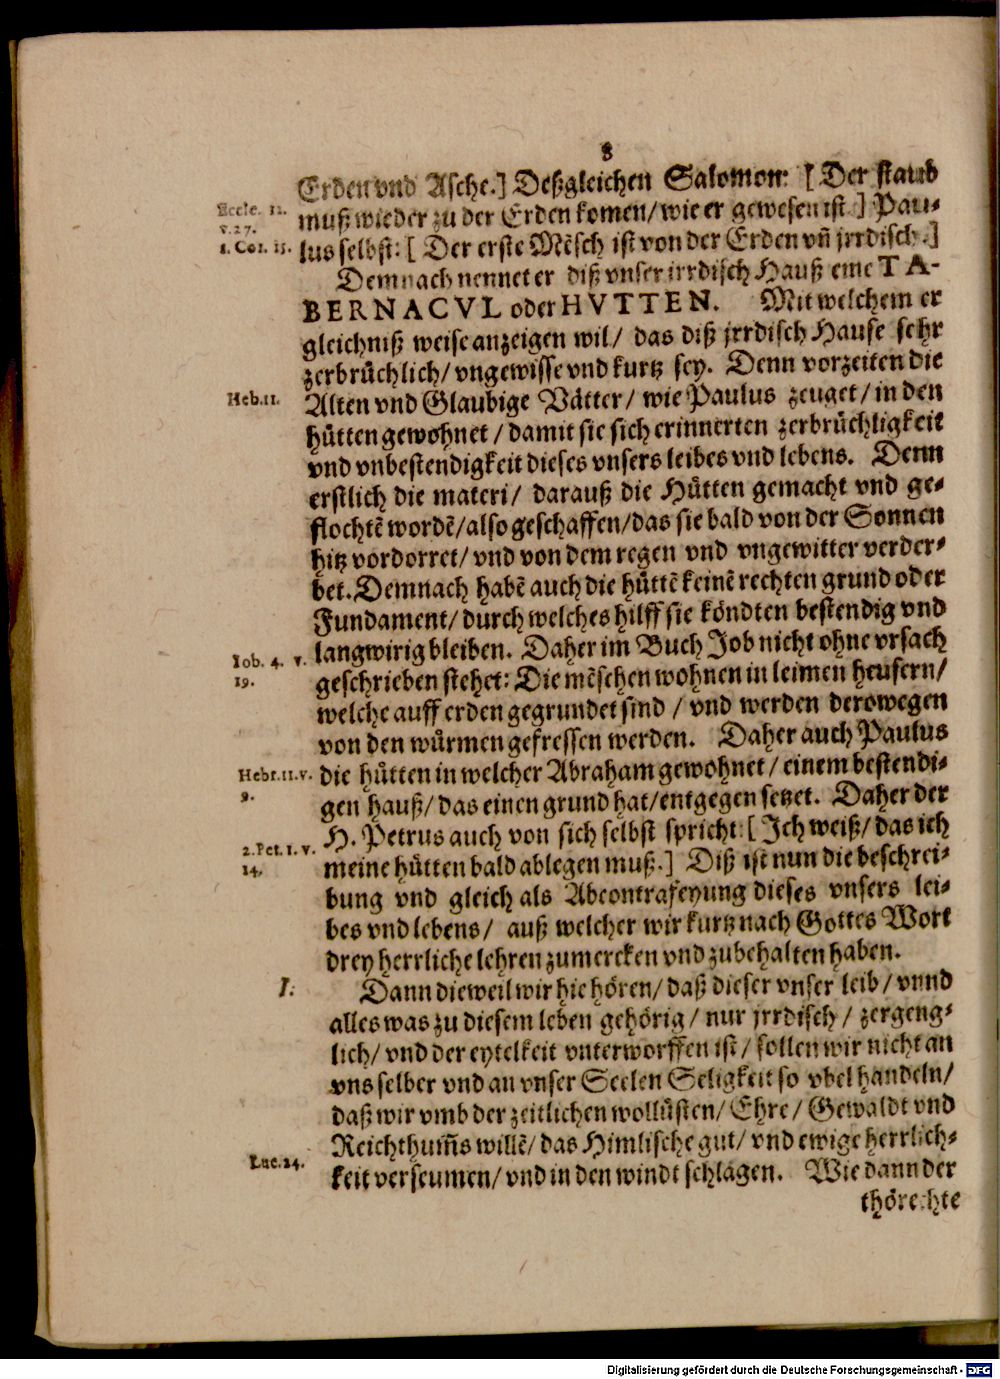 8
Erden vnd Asche.] Deßgleichen Salomon: [ Der staub
Eccle. 12.
v. 27.
muß wieder zu der Erden komen/ wie er gewesen ist.] Pau-
1. Cor. 15.
lus selbst: [ Der erste Mẽsch ist von der Erden vñ jrrdisch.]
Demnach nennet er diß vnser irrdisch Hauß eine TA-
BERNACVL oder HVTTEN. Mit welchem er
gleichniß weise anzeigen wil/ das diß jrrdisch Hause sehr
zerbrüchlich/ vngewisse vnd kurtz sey. Denn vorzeiten die
Heb. 11.
Alten vnd Glaubige Vätter/ wie Paulus zeuget/ in den
hütten gewohnet / damit sie sich erinnerten zerbrüchligkeit
vnd vnbestendigkeit dieses vnsers leibes vnd lebens. Denn
erstlich die materi/ darauß die Hütten gemacht vnd ge-
flochtẽ wordẽ/ also geschaffen/ das sie bald von der Sonnen
hitz vordorret/ vnd von dem regen vnd vngewitter verder-
bet. Demnach habẽ auch die hüttẽ keinẽ rechten grund oder
Fundament/ durch welches hilff sie köndten bestendig vnd
Iob. 4. v.
19.
langwirig bleiben. Daher im Buch Job nicht ohne vrsach
geschrieben stehet: Die mẽschen wohnen in leimen heusern/
welche auff erden gegrundet sind / vnd werden derowegen
von den würmen gefressen werden. Daher auch Paulus
Hebr. 11. v.
9.
die hütten in welcher Abraham gewohnet/ einem bestendi-
gen hauß/ das einen grund hat/ entgegen setzet. Daher der
H. Petrus auch von sich selbst spricht: [ Ich weiß/ das ich
2. Pet. 1. v.
14.
meine hütten bald ablegen muß.] Diß ist nun die beschrei-
bung vnd gleich als Abcontrafeyung dieses vnsers lei-
bes vnd lebens/ auß welcher wir kurtz nach Gottes Wort
drey herrliche lehren zumercken vnd zubehalten haben.
I.
Dann dieweil wir hie hören/ daß dieser vnser leib/ vnnd
alles was zu diesem leben gehörig/ nur jrrdisch/ zergeng-
lich/ vnd der eytelkeit vnterworffen ist/ sollen wir nicht an
vns selber vnd an vnser Seelen Seligkeit so vbel handeln/
daß wir vmb der zeitlichen wollüsten/ Ehre/ Gewaldt vnd
Reichthum̃s willẽ/ das Himlische gut/ vnd ewige herrlich-
Luc. 14.
keit verseumen/ vnd in den windt schlagen. Wie dann der
thörechte
Digitalisierung gefördert durch die Deutsche Forschungsgemeinschaft - DFG